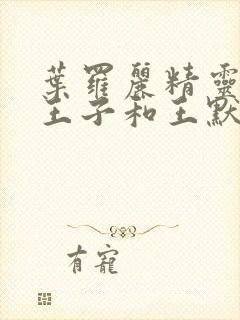 葉羅麗精靈
王子和王默
有寵